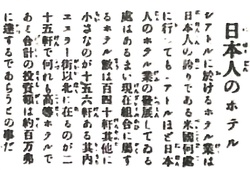 日本人のホテル
シャトルに於けるホテル業は
日本人の誇りである米國何處
に行つてもシアトルほど日本
人のホテル業の發展してゐる
處はあるまい現在組合に屬す
るホテル數は百四十軒其他に
小さなのが十五六軒ある其内
エスラー街以北に在るのが二
十五軒で何れも高等ホテルで
ある合計の投資額は約百万弗
に達するであらうとの事だ